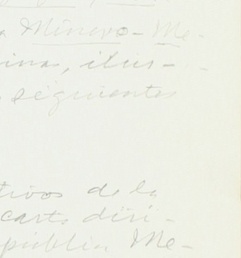 Minero-Me-
ina, ilus-
seguientes
tivos de la
carta diri-
epública Me-